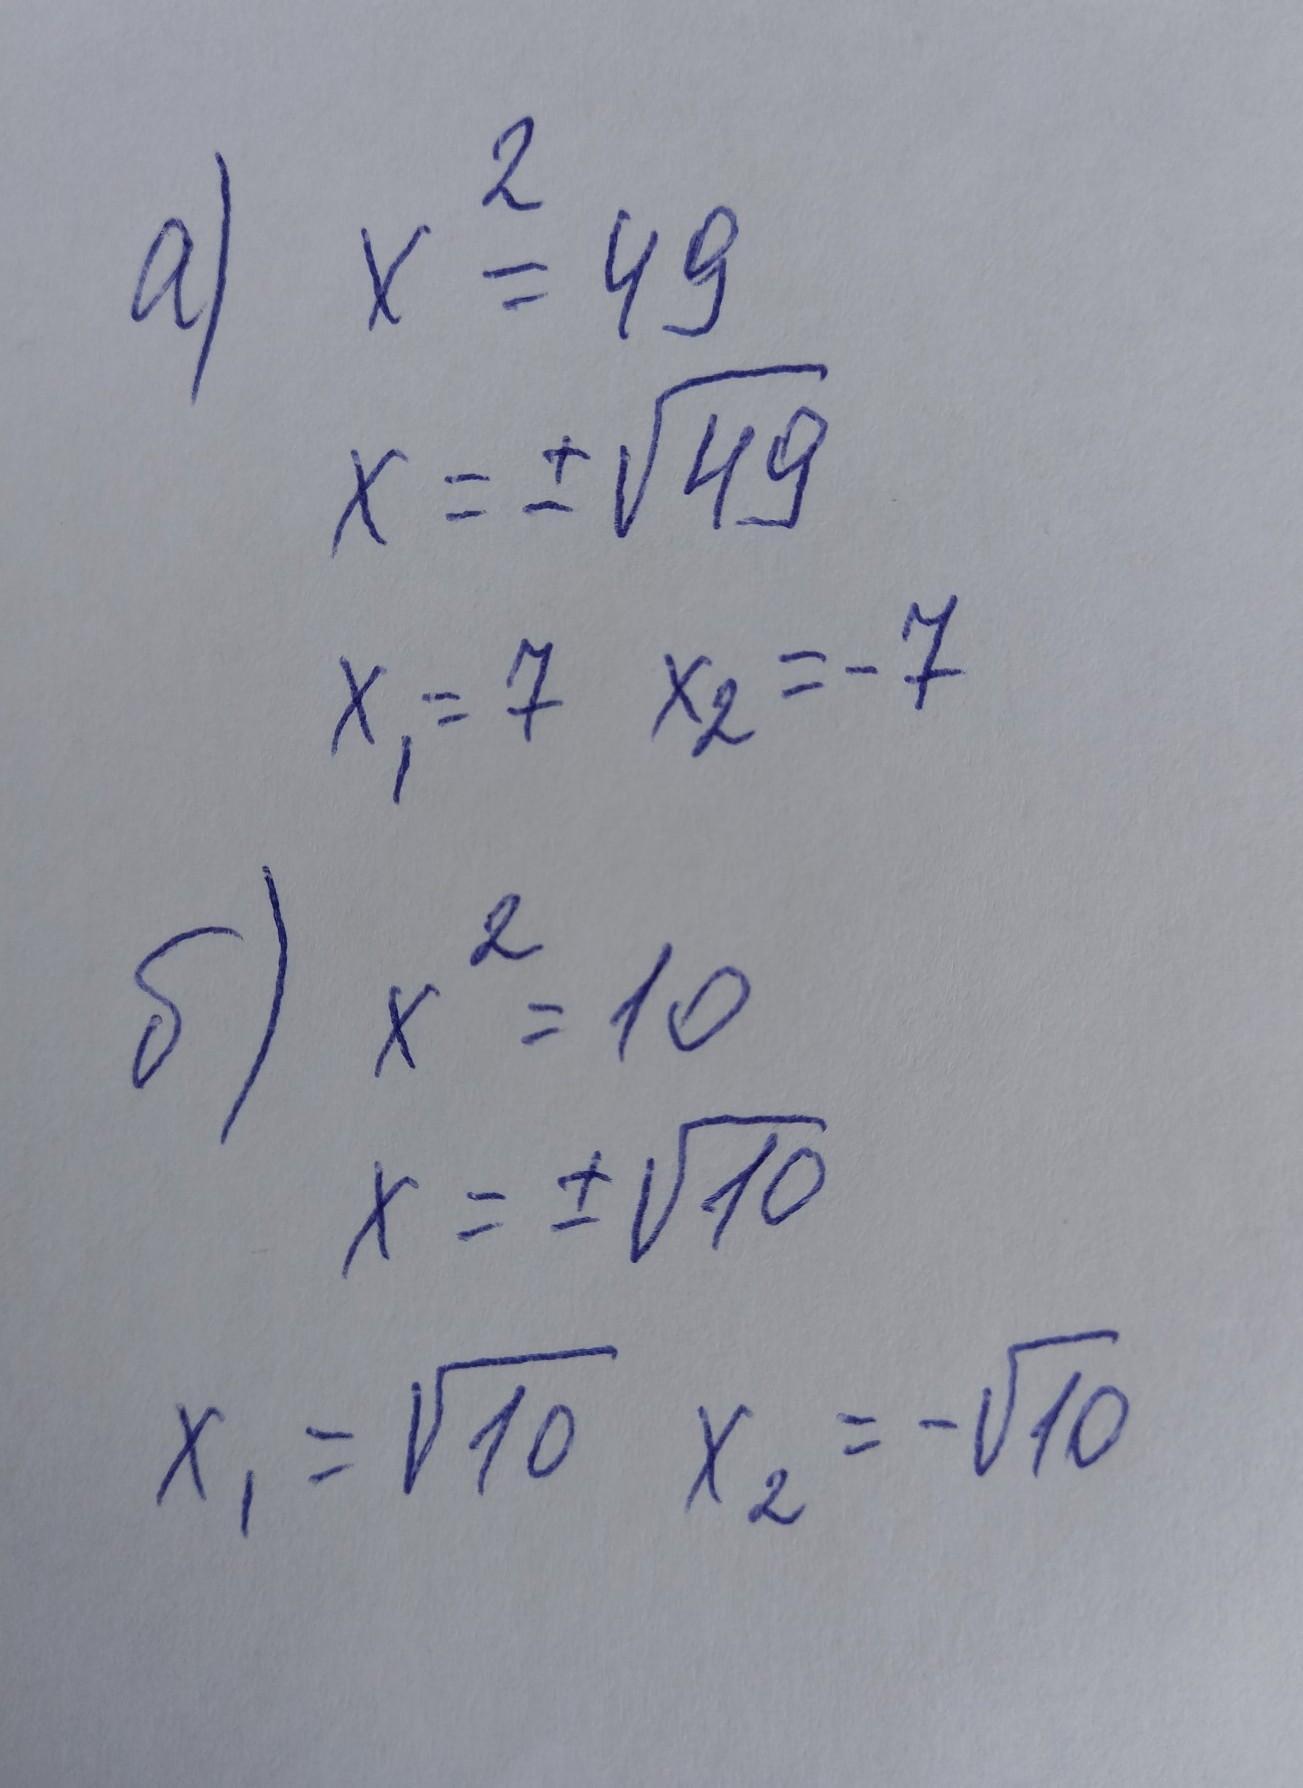 а) x² = 49
x = ±√49
x₁ = 7 x₂ = -7
б) x² = 10
x = ±√10
x₁ = √10 x₂ = -√10